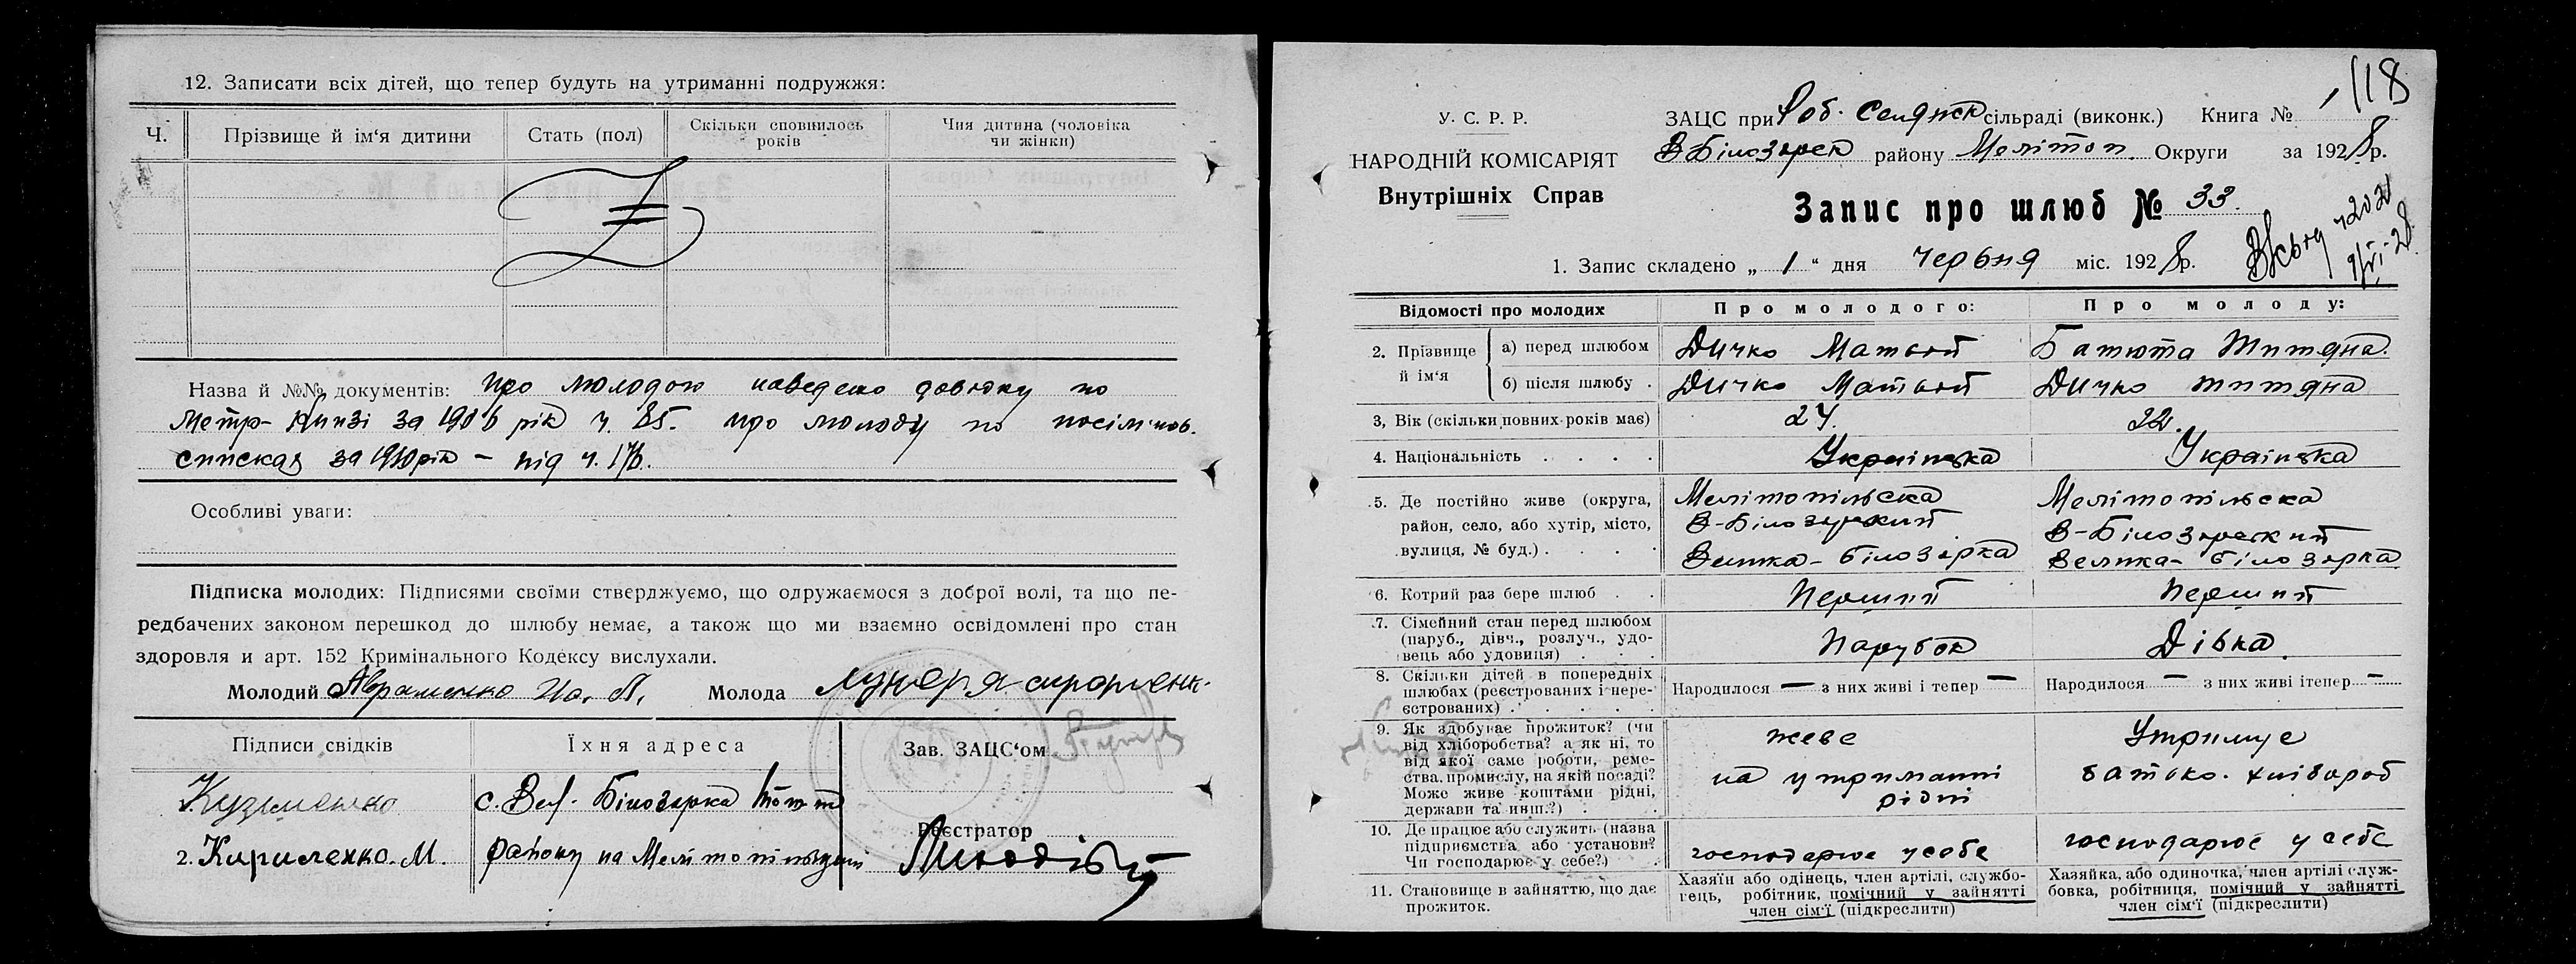 12. Записати всіх дітей, що тепер будуть на утриманні подружжя:
Ч. Прізвище й ім'я дитини Стать (пол) Скільки сповнилось років Чия дитина (чоловіка чи жінки)
Назва й №№ документів: про молодого наведено довідку по
метр- книзі за 1906 рік ч. 85. про молоду по посімейнов.
списках за 1910 рік – під ч. 176.
Особливі уваги:
Підписка молодих: Підписями своїми стверджуємо, що одружаємося з доброї волі, та що пе-
редбачених законом перешкод до шлюбу немає, а також що ми взаємно освідомлені про стан
здоровля и арт. 152 Кримінального Кодексу вислухали.
Молодий Авраменко Молода
Підписи свідків Їхня адреса Зав. ЗАЦС'ом
Кузьменко с. Вел. Білозірка
Реєстратор
2. Кириленко М. району на Мелітопільщині
118
У. С. Р. Р.
НАРОДНІЙ КОМІСАРІЯТ
Внутрішніх Справ
ЗАЦС при Роб. Селянск сільраді (виконк.) Книга № 1
В Білозірск району Мелітоп. Округи за 1928 р.
Запис про шлюб № 33.
1. Запис складено „ 1 “ дня червня міс. 1928 р.
Відомості про молодих Про молодого: Про молоду:
2. Прізвище й ім'я
а) перед шлюбом Дичко Матвій Батюта Титяна.
б) після шлюбу Дичко Матвій Дичко Титяна
3, Вік (скільки повних років має) 24. 22.
4. Національність Українська Українська
5. Де постійно живе (округа, район, село, або хутір, місто, вулиця, № буд.)
Мелітопільска
В-Білозірский
Велика-Білозірка
Мелітопільска
В-Білозірский
Велика-Білозірка
6. Котрий раз бере шлюб Перший Перший
7. Сімейний стан перед шлюбом (паруб., дівч., розлуч., удовець або удовиця) Парубок Дівка.
8. Скільки дітей в попередніх шлюбах (реєстрованих і нереєстрованих) Народилося — з них живі і тепер — Народилося — з них живі ітепер —
9. Як здобуває прожиток? (чи від хліборобства? а як ні, то від якої саме роботи, ремества, промислу, на якій посаді? Може живе коштами рідні, держави та инш.?)
жеве
на утриманні
рідні
Утримує
батько. хлібороб
10. Де працює або служить (назва підприємства або установи? Чи господарює у себе?) господарює у себе господарює у себе
11. Становище в зайняттю, що дає прожиток.
Хазяїн або одінець, член артілі, службовець, робітник, помічний у зайнятті член сім'ї (підкреслити)
Хазяйка, або одиночка, член артілі службовка, робітниця, помічний у зайнятті член сім'ї (підкреслити)